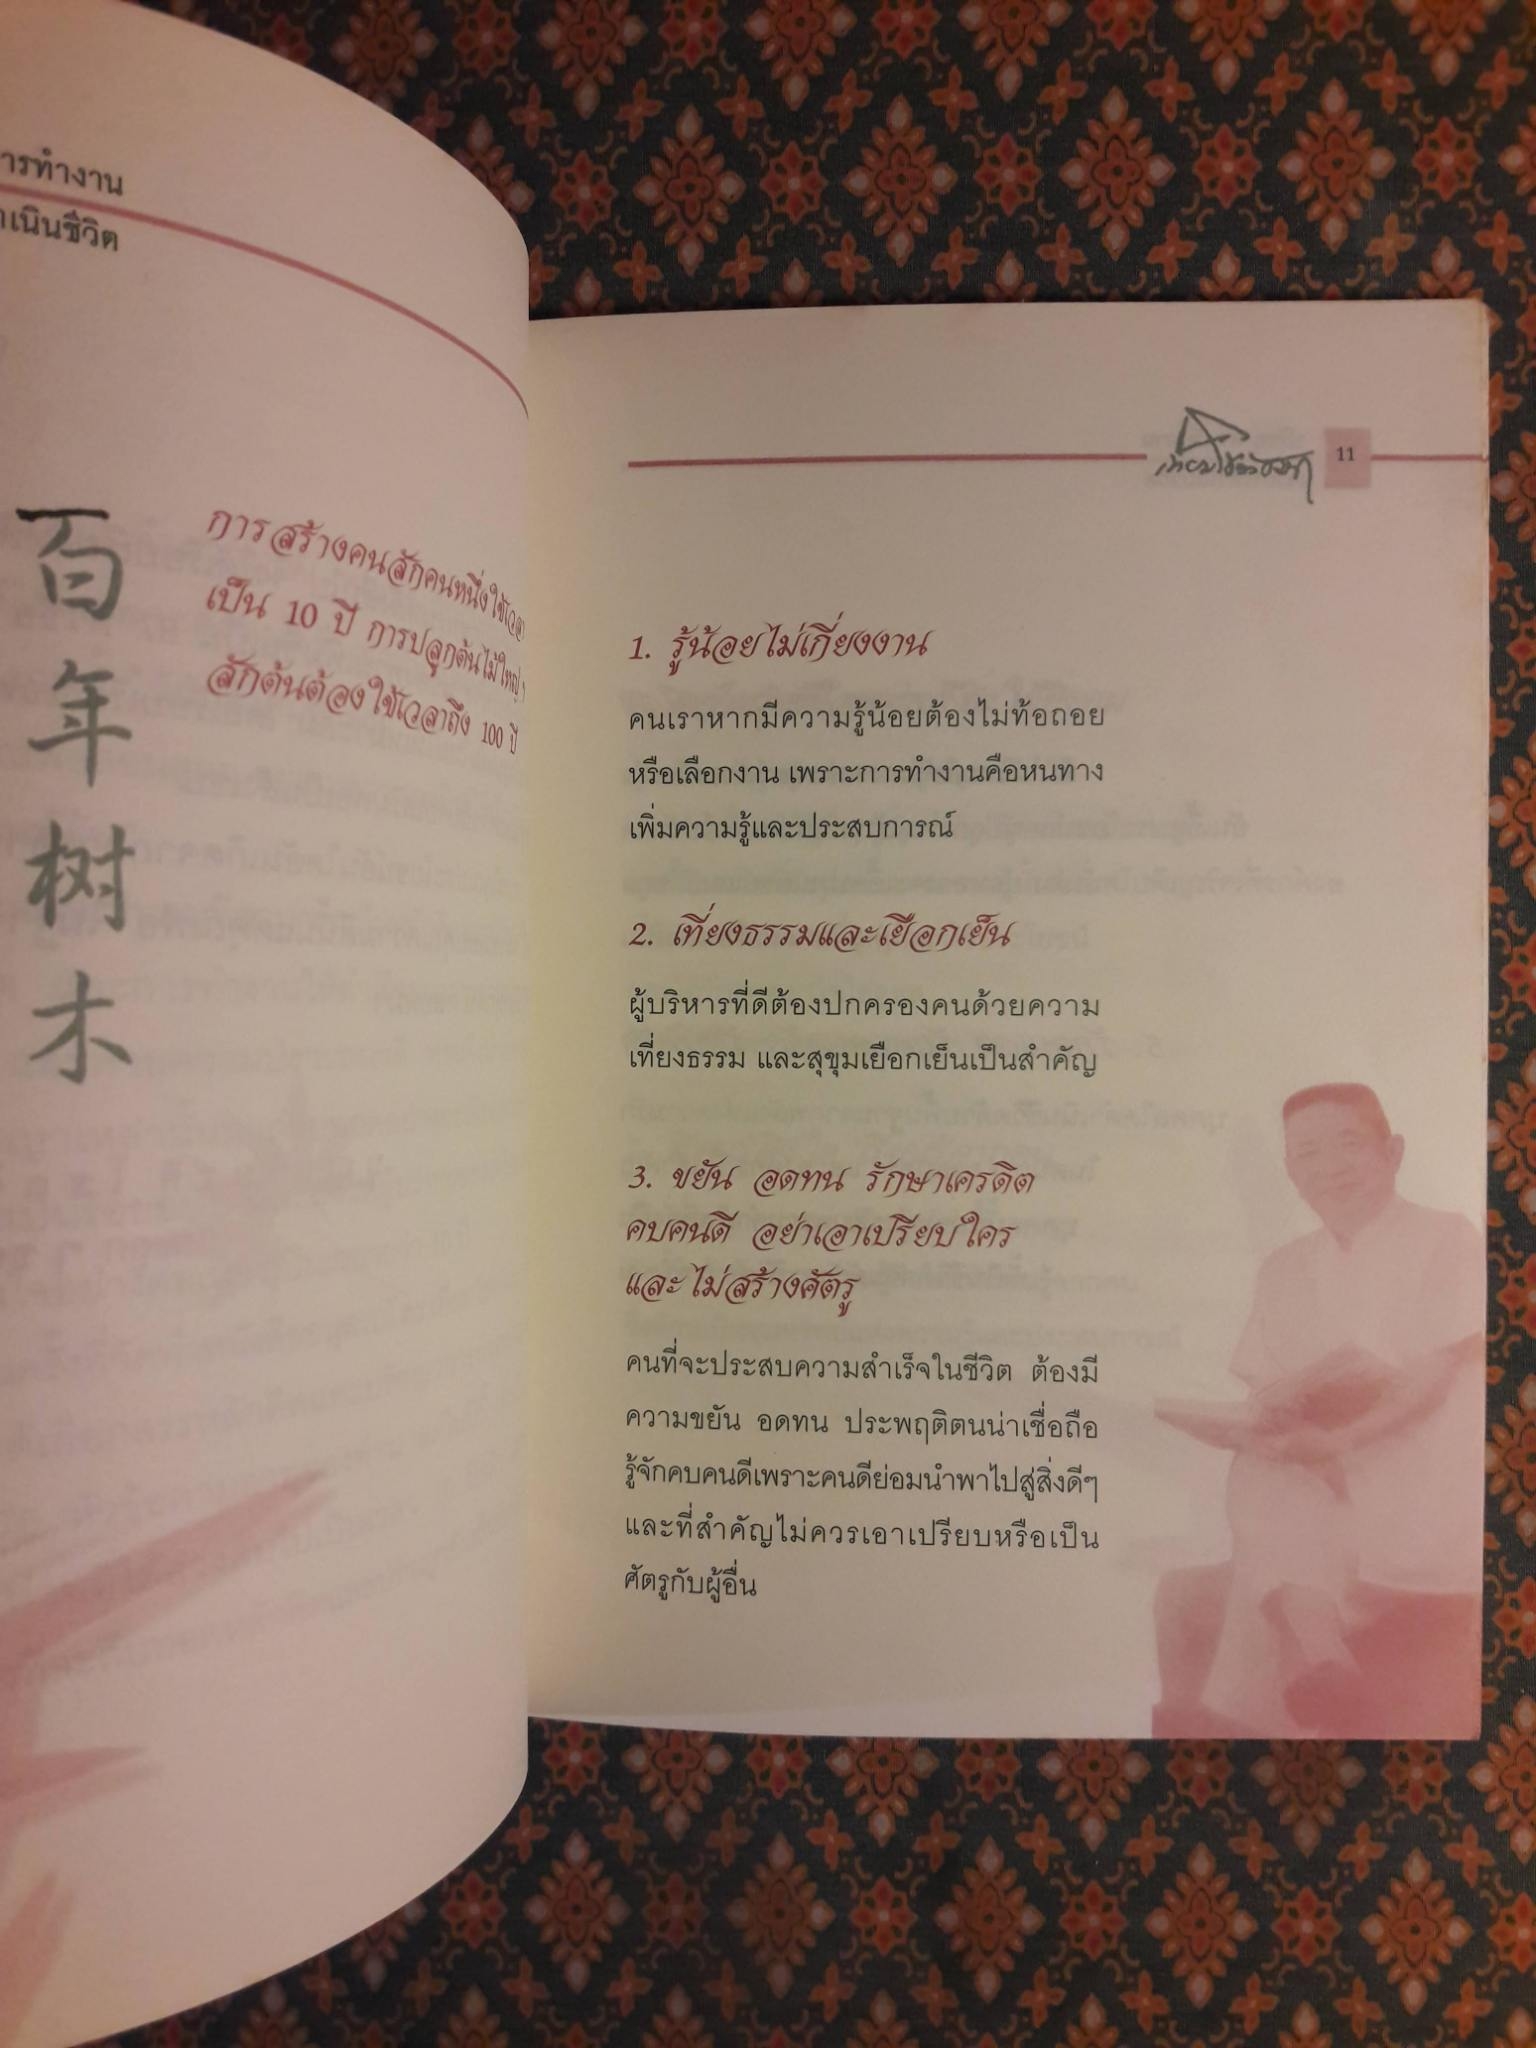 ารทำงาน
เนินชีวิต
百年树木
การสร้างคนสักคนหนึ่งใช้เวลา
เป็น 10 ปี การปลูกต้นไม้ใหญ่ๆ
สักต้นต้องใช้เวลาถึง 100 ปี
11
1. รู้น้อยไม่เกี่ยงงาน
คนเราหากมีความรู้น้อยต้องไม่ท้อถอย
หรือเลือกงาน เพราะการทำงานคือหนทาง
เพิ่มความรู้และประสบการณ์
2. เที่ยงธรรมและเยือกเย็น
ผู้บริหารที่ดีต้องปกครองคนด้วยความ
เที่ยงธรรม และสุขุมเยือกเย็นเป็นสำคัญ
3. ขยัน อดทน รักษาเครดิต
คบคนดี อย่าเอาเปรียบใคร
และไม่สร้างศัตรู
คนที่จะประสบความสำเร็จในชีวิต ต้องมี
ความขยัน อดทน ประพฤติตนน่าเชื่อถือ
รู้จักคบคนดีเพราะคนดีย่อมนำพาไปสู่สิ่งดีๆ
และที่สำคัญไม่ควรเอาเปรียบหรือเป็น
ศัตรูกับผู้อื่น